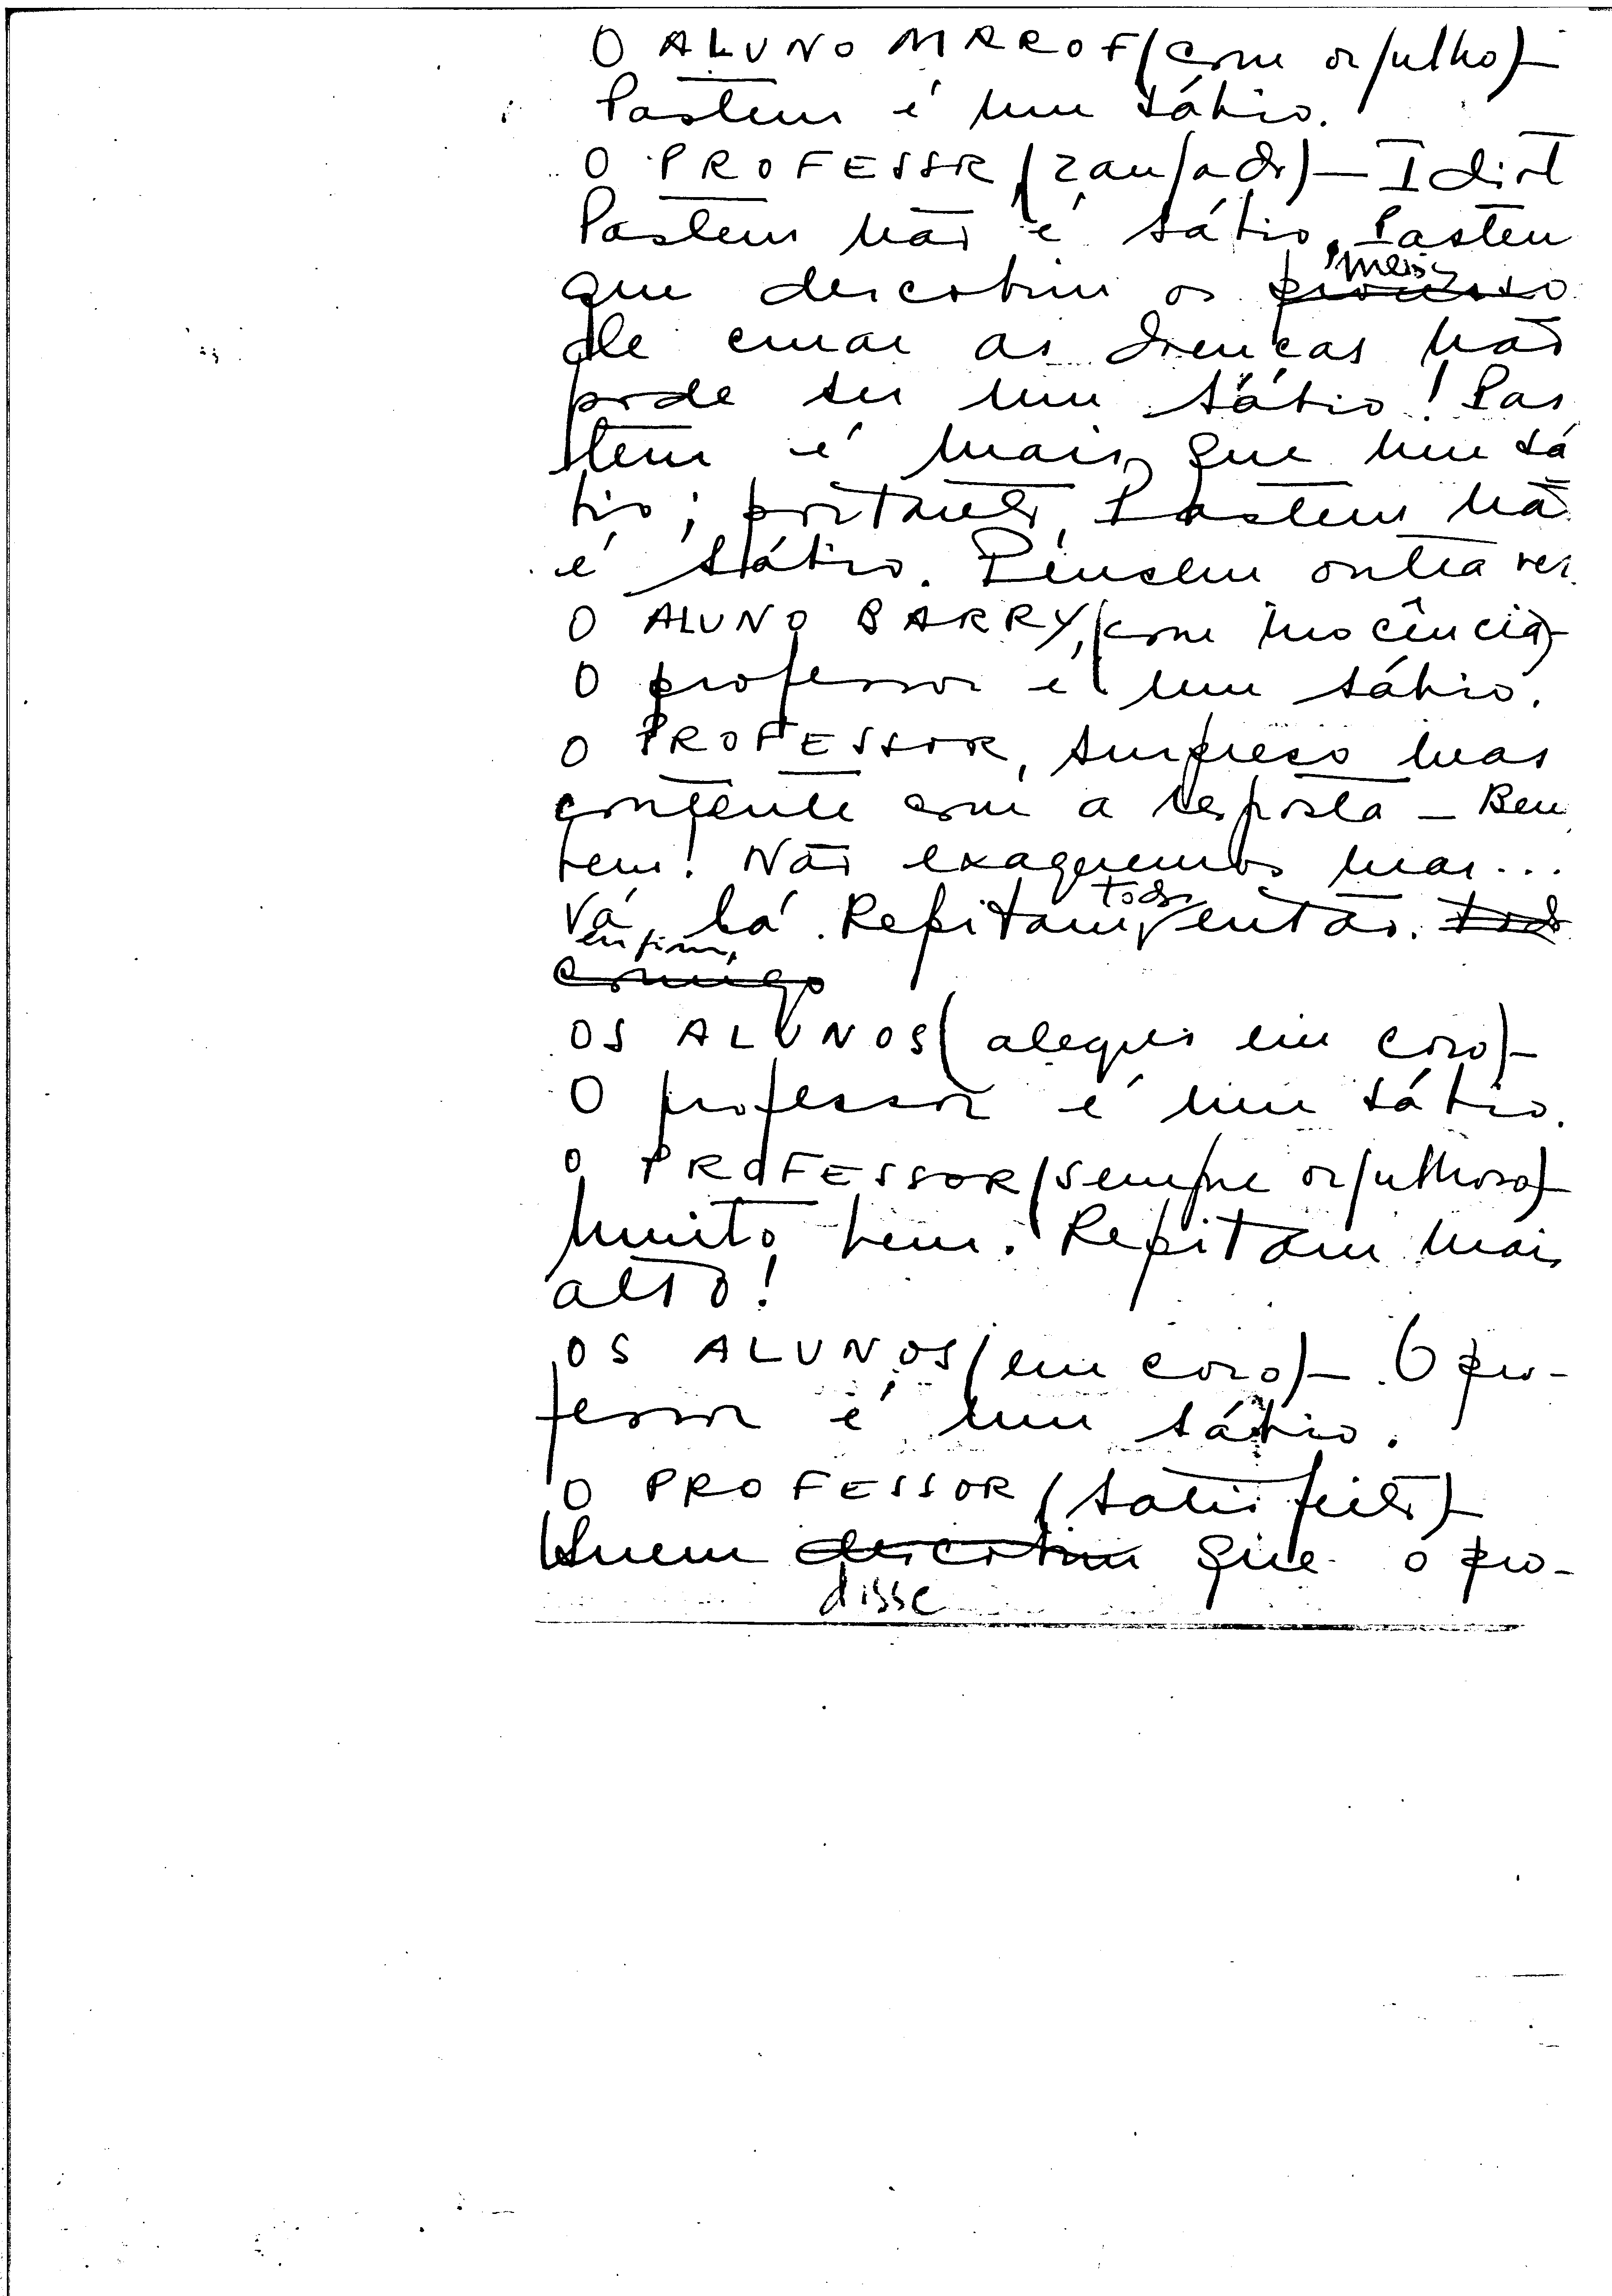 O ALUNO MRROF (com orgulho) —
Pasteur é um sábio.
O PROFESSR (zangado) — Idiot
Pasteur não é sábio. Pasteu
que descobriu os processo meios
de curar as doenças não
pode ser um sábio! Pas
teur é mais que um sá
bio; portanto, Pasteur nã
é sábio. Pensem outra vez.
O ALUNO BARRY, (com inocência) —
O professor é um sábio.
O PROFESSOR, surpreso mas
contente com a resposta — Bem
bem! Não exageremos mas...
Vá lá. Repitam todos então. tod
enfim,
comigo
OS ALUNOS (alegres em coro) —
O professor é um sábio.
O PROFESSOR (sempre orgulhoso) —
Muito bem. Repitam mais
alto!
OS ALUNOS (em coro) — O pro-
fessor é um sábio.
O PROFESSOR (satisfeito) —
Quem descobriu que o pro-
disse